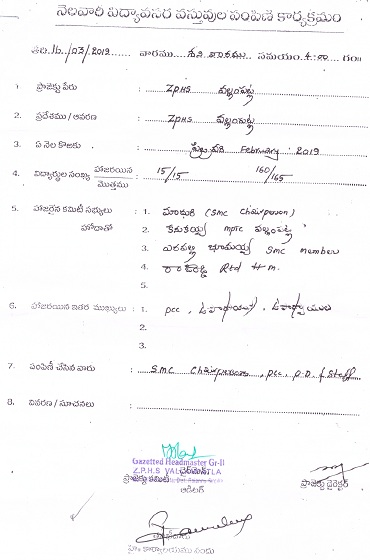 నెలవారీ విద్యావసర వస్తువుల పంపిణి కార్యక్రమం
తేది. 16/03/2019 వారము శని వారము సమయం.
1. ప్రాజెక్టు పేరు : ZPHS వల్లంపట్ల
2. ప్రదేశము / ఆవరణ : ZPHS వల్లంపట్ల
3. ఏ నెల కొఱకు : ఫిబ్రవరి February 2019
4. విద్యార్థుల సంఖ్య హాజరయిన/మొత్తము : 15/15 160/165
5. హాజరైన కమిటీ సభ్యులు : 1. మాధురి (SMC Chairperson)
హోదాతో 2. కనుకయ్య MPTC వల్లంపట్ల
3. భూమయ్య SMC member
4. Rtd H.M.
5.
6. హాజరయిన ఇతర ముఖ్యులు : 1. pcc,
2.
3.
7. పంపిణీ చేసిన వారు : SMC Chairperson, pcc, P.D & Staff
8. వివరణ / సూచనలు :
Gazetted Headmaster Gr-II
Z.P.H.S VALLAMPATLA
ప్రాజెక్టు కమిటి చైర్మెన్ ప్రాజెక్టు డైరెక్టర్
ఆడిటర్
హెం కార్యాలయము నందు